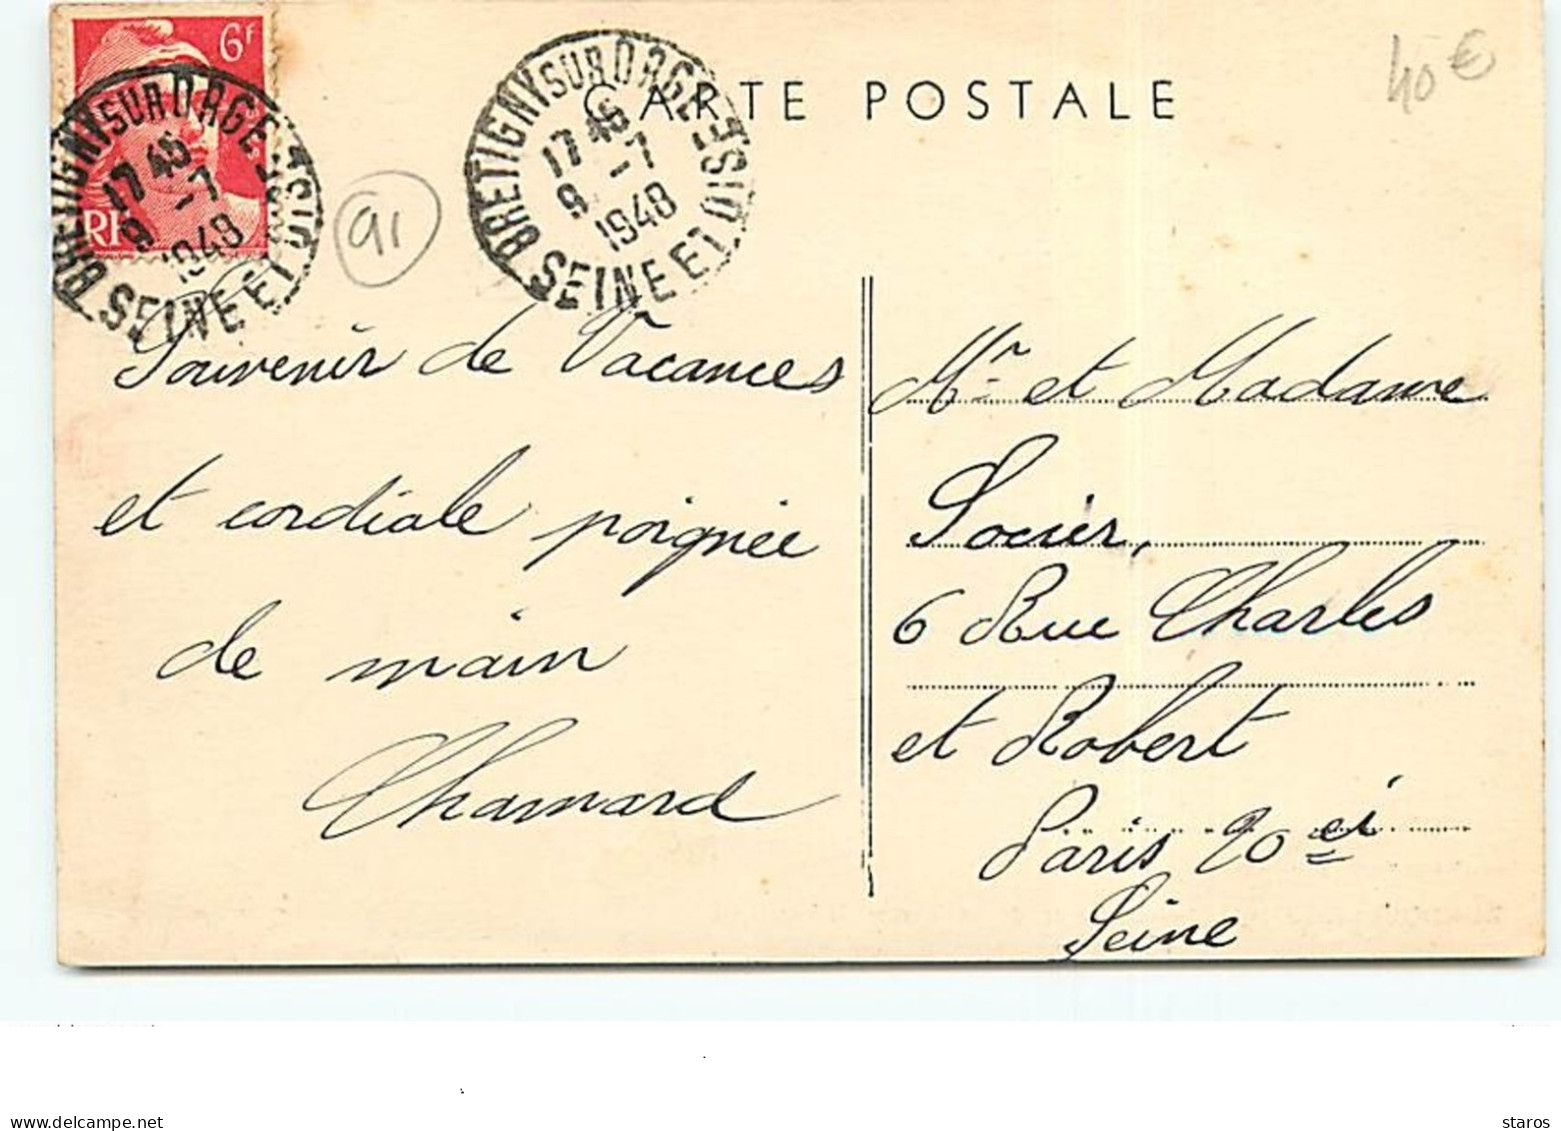 6F
RF
BRETIGNY SUR ORGE
17 45
9 -7
1948
SEINE ET OISE
BRETIGNY SUR ORGE
17 45
9 -7
1948
SEINE ET OISE
91
CARTE POSTALE
40 €
Souvenir de Vacances
et cordiale poignée
de main
Chamard
Mr et Madame
Socier,
6 Rue Charles
et Robert
Paris 20 ei
Seine
www.delcampe.net
staros